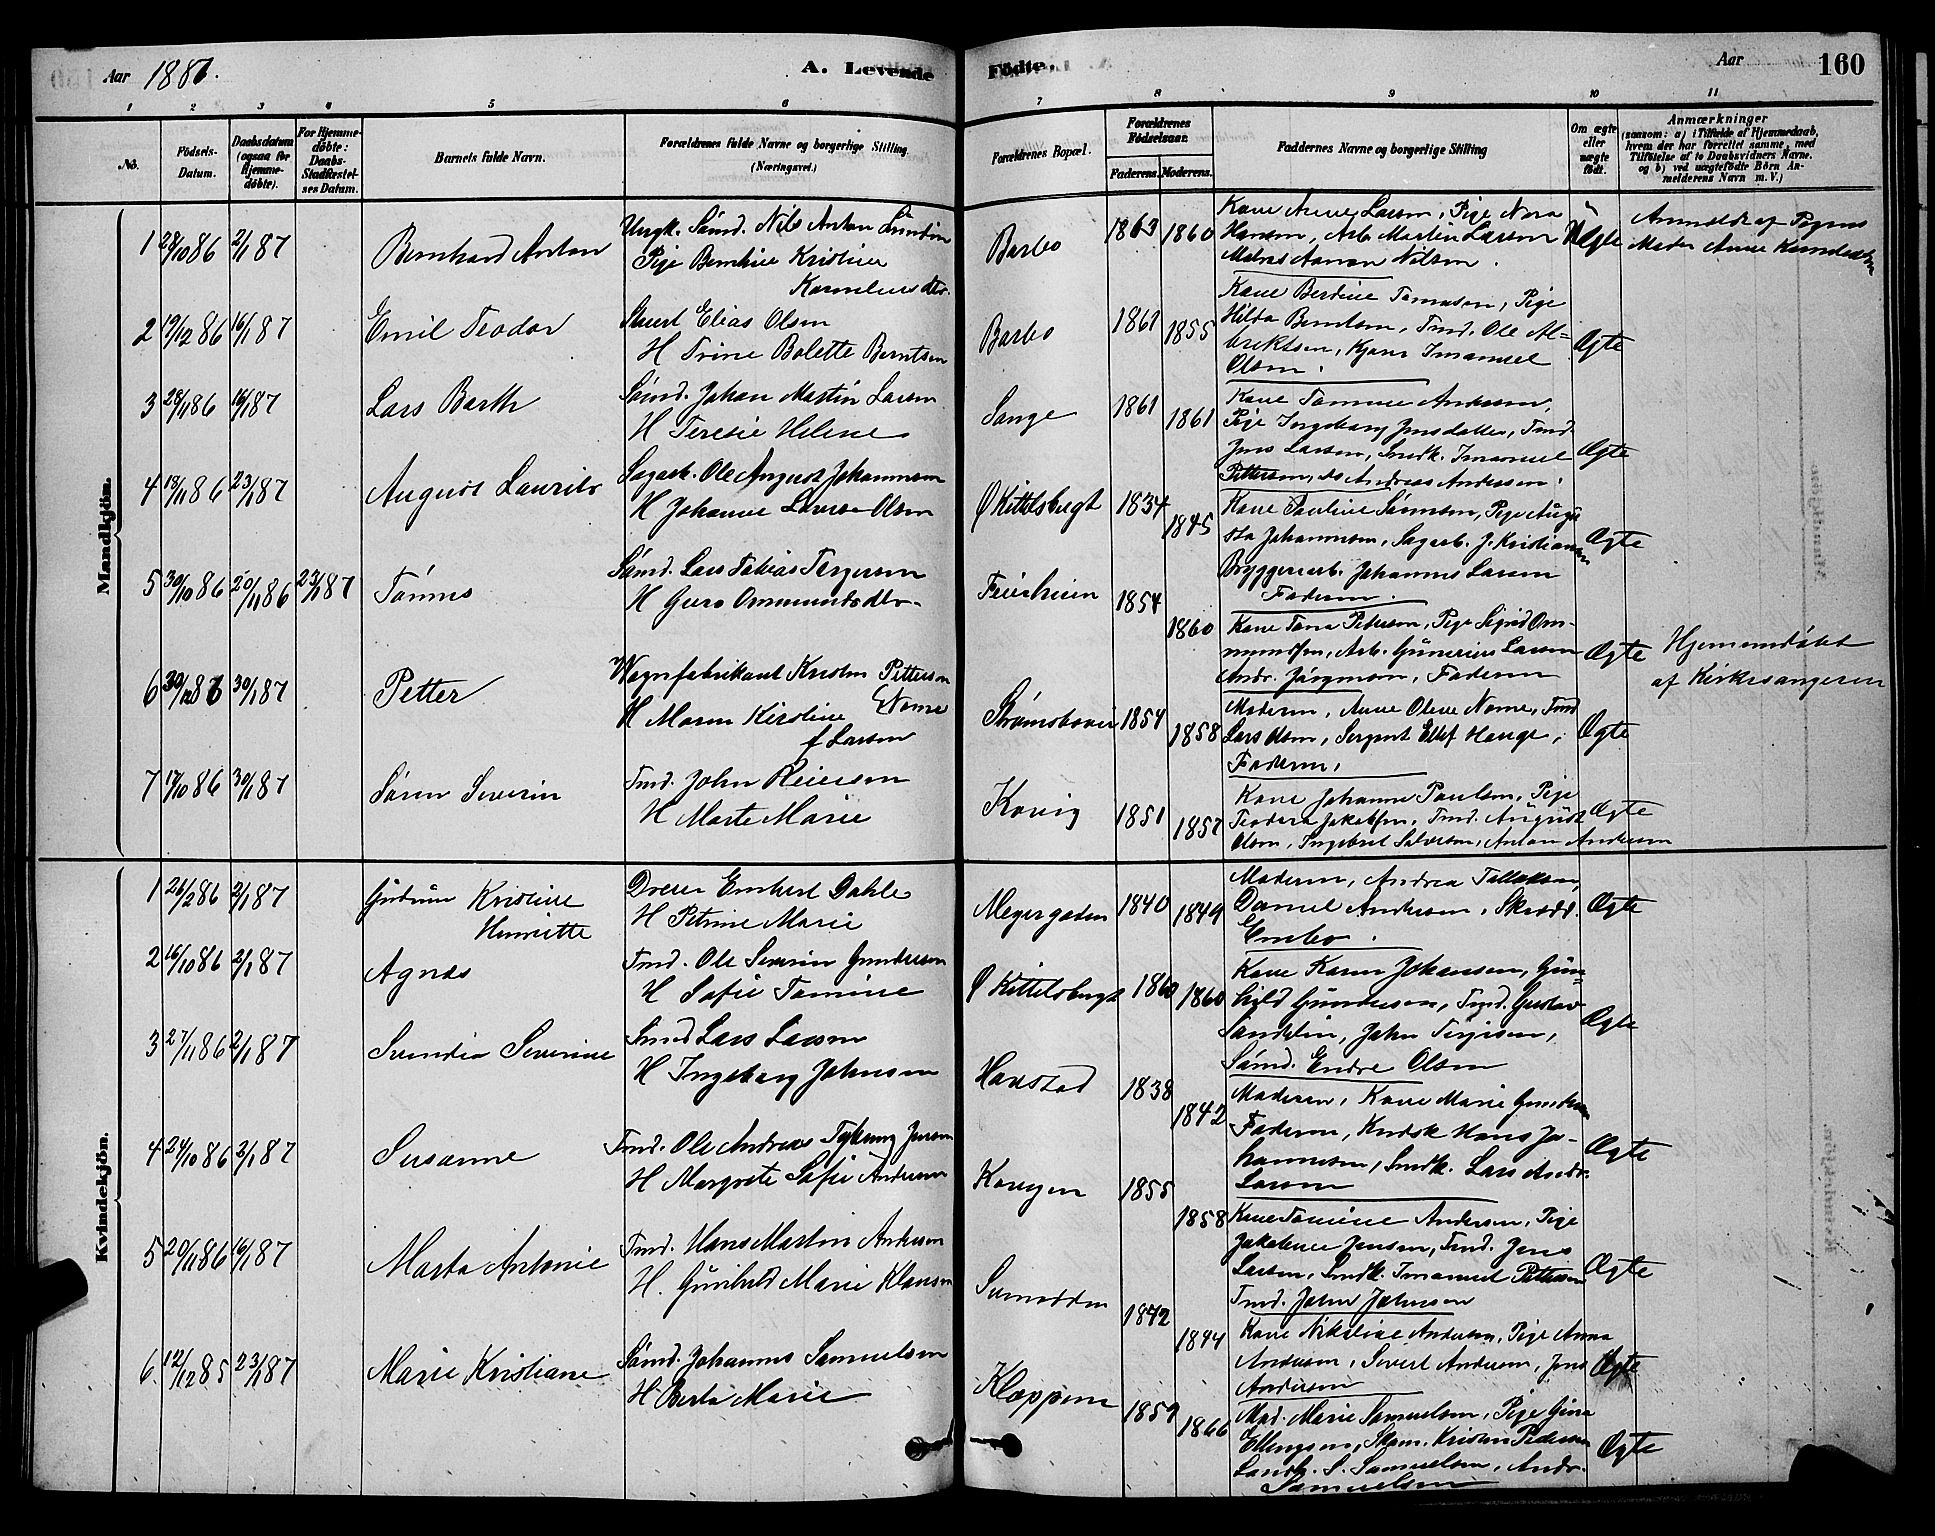 Aar 1886.
A. Levende
Fødte.
Aar
160
1 2 3 4 5 6 7 8 9 10 11
No.
Fødsels-Datum.
Daabsdatum (ogsaa for Hjemme-døbte).
For Hjemme-døbte: Daabs-Stadfæstel-ses Datum.
Barnets fulde Navn.
Forældrenes fulde Navne og borgerlige Stilling (Næringsvei.)
Forældrenes Bopæl.
Forældrenes Fødselsaar.
Faderens. Moderens.
Faddernes Navne og borgerlige Stilling
Om ægte eller uægte født.
Anmærkninger
(saasom: a) i Tilfælde af Hjemmedaab, hvem der har forrettet samme, med Tilføielse af to Daabsvidners Navne. og b) ved uægtefødte Børn An-melderens Navn m. V.)
Mandkjøn.
1 28/10 86 2/1 87 Bernhard Anton
Ungk. Sømd. Nils Anton Lundin
Pige Bernhine Kristine
Korneliusdtr.
Barbo 1863 1860
Kone Anne Larsen, Pige Nora
Hansen, Arb. Martin Larsen
Matros Aanon Nilsen.
Uægte
Anmeldt af Pigens
Moder Anne
2 19/12 86 16/1 87 Emil Teodor
Stuert Elias Olsen
H Trine Bolette Berntsen
Barbo 1861 1855
Kone Berdine Tomasen, Pige
Hilda Berntsen, Tmd. Ole Al-
brektsen, Imanuel
Olsen.
Ægte
3 28/11 86 16/1 87 Lars Barth
Sømd. Johan Martin Larsen
H Teresie Helene
Songe 1861 1861
Kone Tomine Andersen,
Pige Ingeborg Jensdatter, Tmd.
Jens Larsen, Smdk. Imanuel
Pettersen, do Andreas Andersen.
Ægte
4 18/11 86 23/1 87 August Laurits
Sagarb. Ole August Johannesen
H Johanne Lovise Olsen
Ø Kittelsbugt 1834 1845
Kone Pauline Sørensen, Pige Augu
sta Johannesen, Sagarb. J. Kristiansen
Bryggeriarb. Johannes Larsen
Faderen.
Ægte
5 30/10 86 20/11 86 23/1 87 Tønnes
Sømd. Lars Tobias Torgersen
H Guro Ommundsdtr.
1854 1860
Kone Tona Petersen, Pige Sigrid Om-
mundsen, Arb. Gunerius Larsen
Andr. Jørgensen, Faderen
Ægte
Hjemmedøbt
af Kirkesangeren
6 30/12 86 30/1 87 Petter
Vognfabrikant Kristen Pettersen
Nome
H Maren Kirstine
f Larsen
Strømsboveien 1854 1858
Moderen, Anne Oleve Nome, Tmd
Lars Olsen, Sergent Ellef Hauge,
Faderen.
Ægte
7 17/10 86 30/1 87 Søren Severin
Tmd. John Reiersen
H Marte Marie
Kovig 1851 1857
Kone Johanne Paulsen, Pige
Teodora Jakobsen, Tmd. August
Olsen, Ingebret Salvesen, Anton Andersen
Ægte
Kvindekjøn.
1 26/2 86 2/1 87 Gudrun Kristine
Henriette
Dreier Emhert Dahle
H Petrine Marie
Meyergaden 1840 1849
Moderen, Andrea Tellefsen,
Daniel Andersen, Skrædd.
Ægte
2 16/10 86 2/1 87 Agnes
Tmd. Ole Severin Gundersen
H Sofie Tomine
Ø Kittelsbugt 1860 1860
Kone Karen Johansen, Gun-
hild Gundersen, Tmd. Gustav
Sandelin, John Terjesen,
Sømd. Endre Olsen
Ægte
3 27/11 86 2/1 87 Svendia Severine
Smed Lars Larsen
H Ingeborg Johnsen
Havstad 1838 1842
Moderen, Kone Marie
Faderen, Hans Jo-
hannesen, Smdk. Lars Andr.
Larsen
Ægte
4 24/10 86 2/1 87 Susanne
Tmd. Ole Andreas Jensen
H Margrete Sofie Andersen
1855 1858
Kone Tomine Andersen, Pige
Jakobine Jensen, Tmd. Jens
Larsen, Smdk. Imanuel Pettersen
Tmd. John Johnsen
Ægte
5 20/11 86 16/1 87 Marta Antonie
Tmd. Hans Martin Andersen
H. Gunhild Marie Klausen
1842 1844
Kone Nikoline Andersen, Pige Anna
Andersen, Sivert Andersen, Jens
Andersen
Ægte
6. 12/12 85 23/1 87 Marie Kristiane
Sømd. Johannes Samuelsen
H Berta Marie
Kloppene 1859 1866
Mad. Marie Samuelsen, Pige Gina
Ellingsen, Skom. Kristen Pedersen
Landh. S. Samuelsen, Andr.
Samuelsen
Ægte